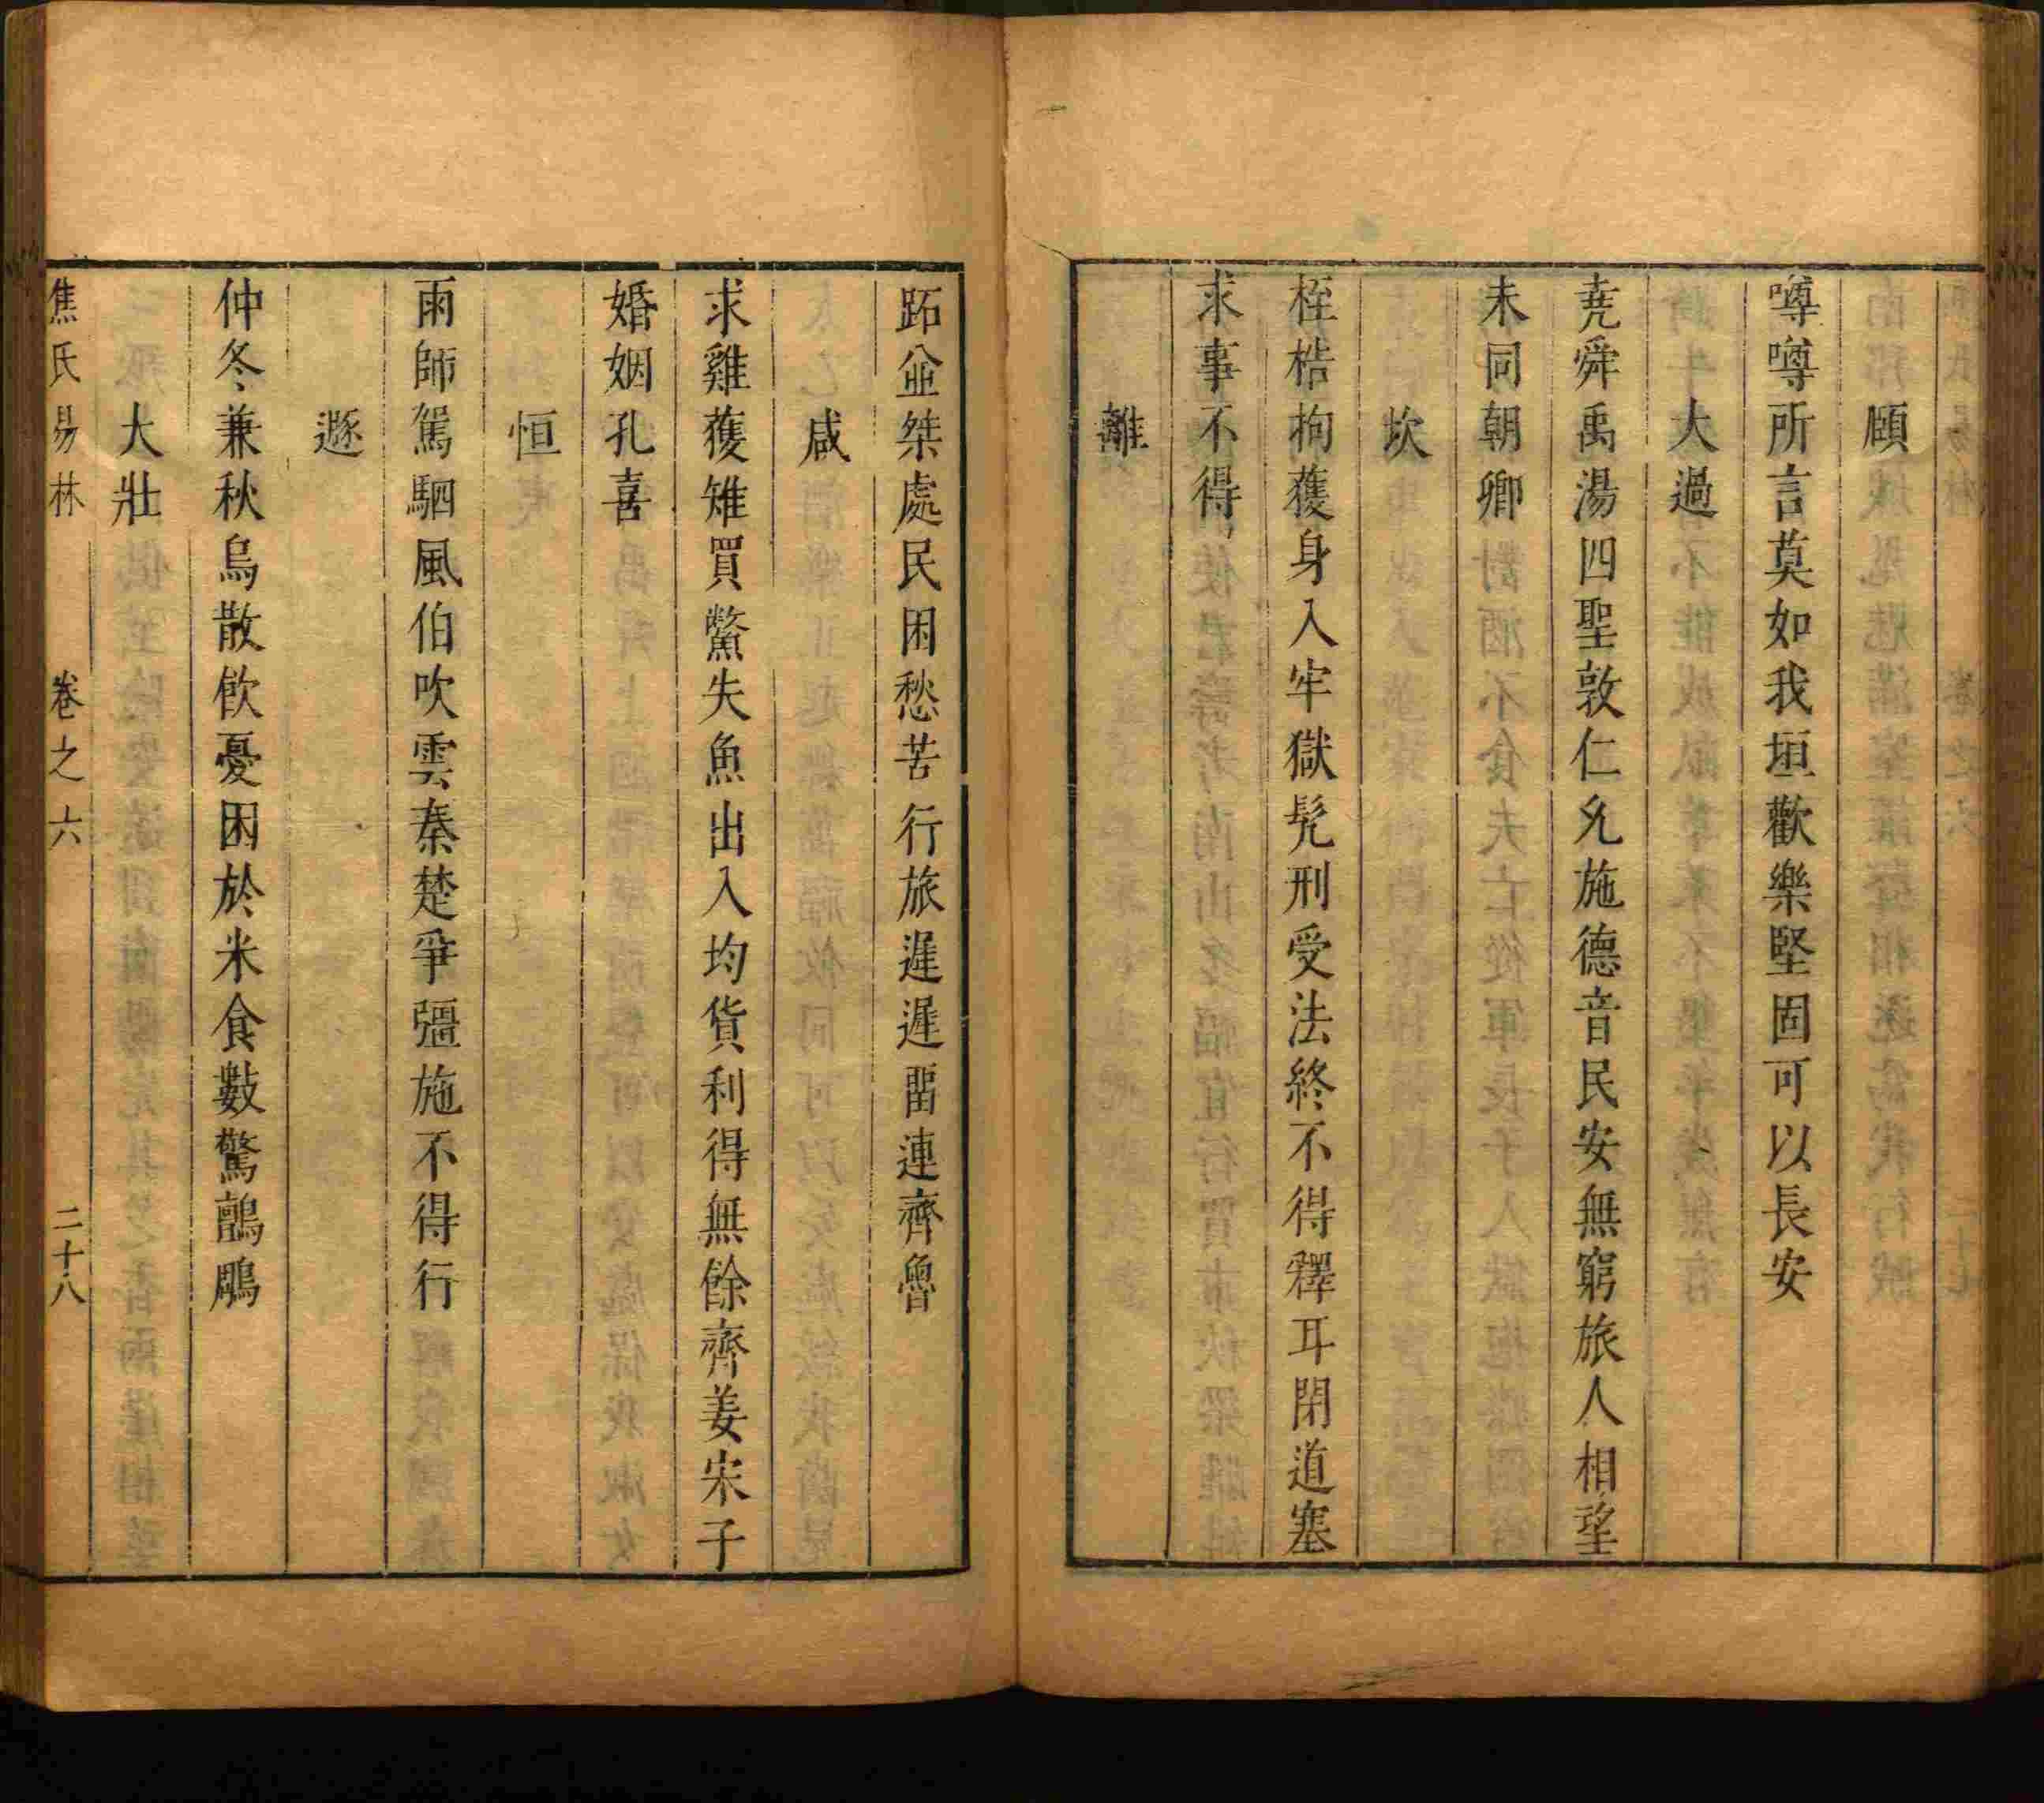 頤
噂噂所言莫如我垣歡樂堅固可以長安
大過
堯舜禹湯四聖敦仁允施德音民安無窮旅人相望
未同朝卿
坎
桎梏拘獲身入牢獄髡刑受法終不得釋耳閉道塞
求事不得
離
跖並桀處民困愁苦行旅遲遲畱連齊魯
咸
求雞獲雉買鱉失魚出入均貨利得無餘齊姜宋子
婚姻孔喜
恒
雨師駕駟風伯吹雲秦楚爭彊施不得行
遯
仲冬兼秋烏散飲憂困於米食數驚鸇鵰
大壯
焦氏易林 卷之六 二十八